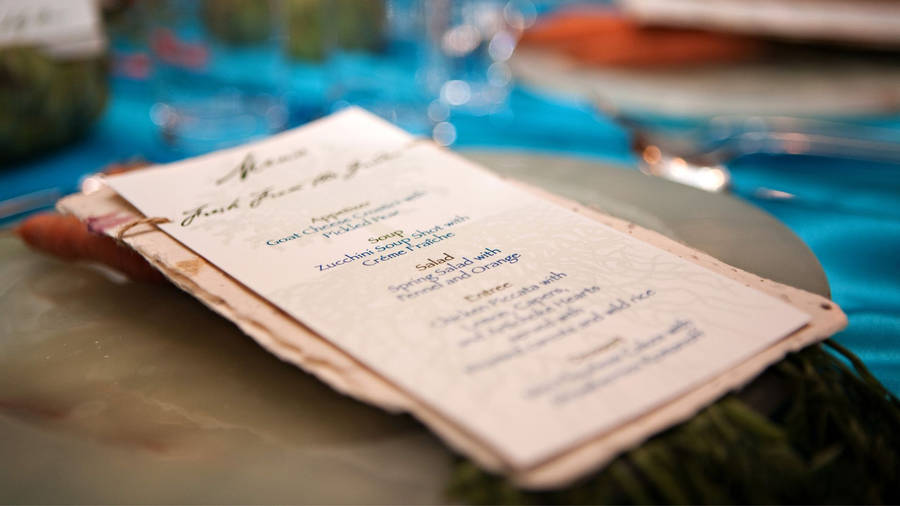 Menu
Fresh From the Garden
Appetizer
Goat Cheese Crostini with
Pickled Pear
Soup
Zucchini Soup Shot with
Créme Fraîche
Salad
Spring Salad with
Fennel and Orange
Entree
Chicken Piccata with
Lemon, Capers,
and Artichoke Hearts
served with
carrots and wild rice
Dessert
with